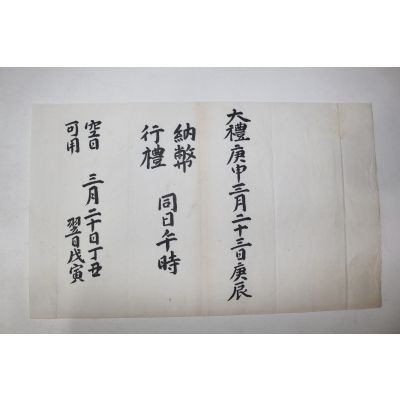 大禮庚申三月二十三日庚辰
納幣
行禮 同日午時
空日 三月二十日丁丑
可用 翌日戊寅